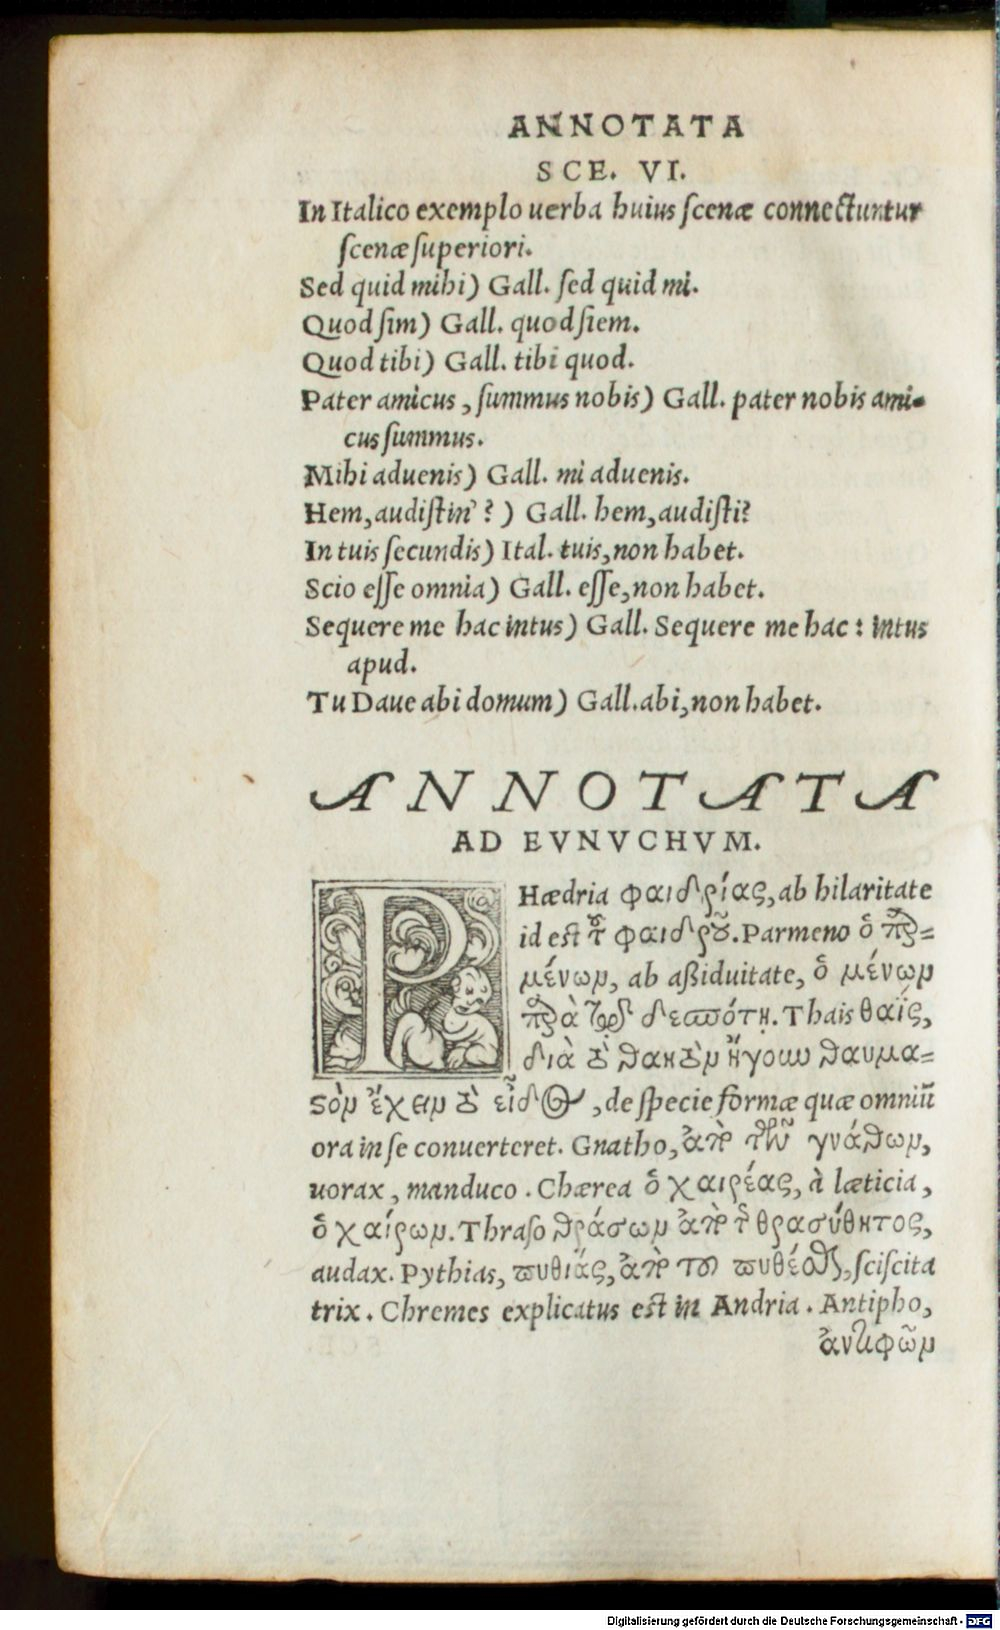 ANNOTATA
SCE. VI.
In Italico exemplo uerba huius ſcenæ connectuntur
ſcenæ ſuperiori.
Sed quid mihi) Gall. ſed quid mi.
Quod ſim) Gall. quod ſiem.
Quod tibi) Gall. tibi quod.
Pater amicus, ſummus nobis) Gall. pater nobis ami-
cus ſummus.
Mihi aduenis) Gall. mi aduenis.
Hem, audiſtin'? ) Gall. hem, audiſti?
In tuis ſecundis) Ital. tuis, non habet.
Scio eſſe omnia) Gall. eſſe, non habet.
Sequere me hac intus) Gall. Sequere me hac: intus
apud.
Tu Daue abi domum) Gall. abi, non habet.
ANNOTATA
AD EVNVCHVM.
PHædria φαιδρίας, ab hilaritate
id est τȣ͂ φαιδρȣ͂. Parmeno ὁ παρ=
μένων, ab aßiduitate, ὁ μένων
παρὰ τῷ δεσπότῃ. Thais θαΐς,
διὰ τὸ θακὸν ἤγουν θαυμα=
ϛὸν ἔχειν τὸ εἶδος, de ſpecie formæ quæ omniū
ora in ſe conuerteret. Gnatho, ἀπὸ τῶν γνάθων,
uorax, manduco. Chærea ὁ χαιρέας, à læticia,
ὁ χαίρων. Thraſo θράσων ἀπὸ τȣ͂ θρασύθητος,
audax. Pythias, πυθιάς, ἀπὸ τοῦ πυθέσθαι, ſciſcita
trix. Chremes explicatus est in Andria. Antipho,
ἀντιφῶν
Digitalisierung gefördert durch die Deutsche Forschungsgemeinschaft - DFG